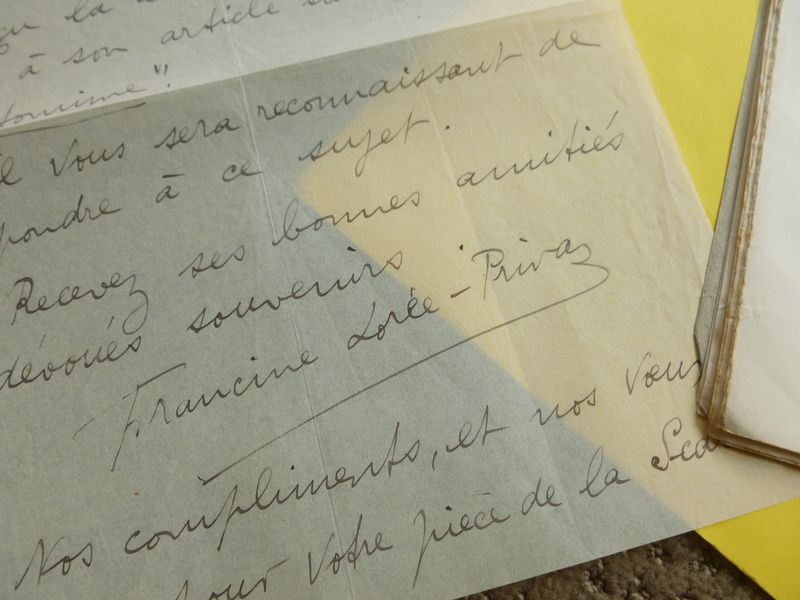 à son article
vous sera reconnaissant de
pondre à ce sujet.
Recevez ses bonnes amitiés
dévoués souvenirs.
Francine Lorée-Privas
Nos compliments, et nos vœux
pour votre pièce de la